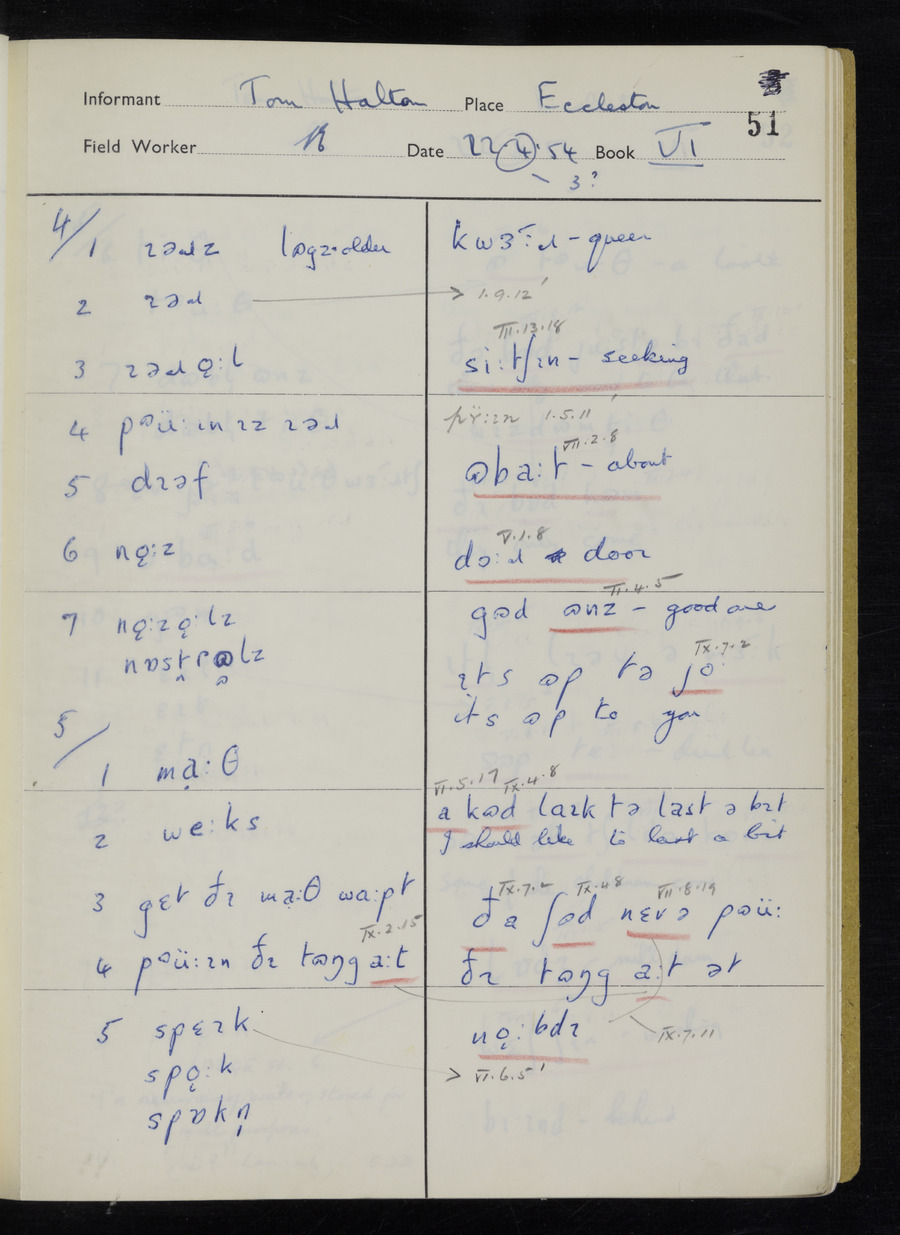 Informant Tom Halton Place Eccleston
51
Field Worker Date 22.4.54 Book VI
3?
4/
1 ɪəɹz lɒgz·older
2 ɪəɹ
3 ɪəɹ o̜:l
4 pᶷü:ɪnɪz ɪəɹ
5 dɪəf
6 no̜:z
7 no̜:zo̜:lz
5/
1 ma̜:θ
2 we:ks
3 gɛt ðɪ ma̜:θ wa:pt
IX.2.15
4 pᶷü:ɪn ðɪ tɷŋg a:t
5 spɛɪk
spo̜:k
spɒkn̩
kwɜ:ɹ – queer
> 1.9.12'
III.13.18
si:tʃɪn – seeking
pÿ:ɪn 1.5.11'
VII.2.8
ɷba:t – about
V.1.8
dɔ:ɹ door
II.4.5
gɷd ɷnz – good ones
IX.7.2
ɪts ɷp tə jo
its ɷp to you
VI.5.17 IX.4.8
a kɷd laɪk tə last ə bɪt
I should like to last a bit
IX.7.2 IX.4.8 VII.8.19
ða ʃɷd nɛvə pᶷü:
ðɪ tɷŋg a:t ət
no̜:bdɪ IX.7.11
> VI.6.5'